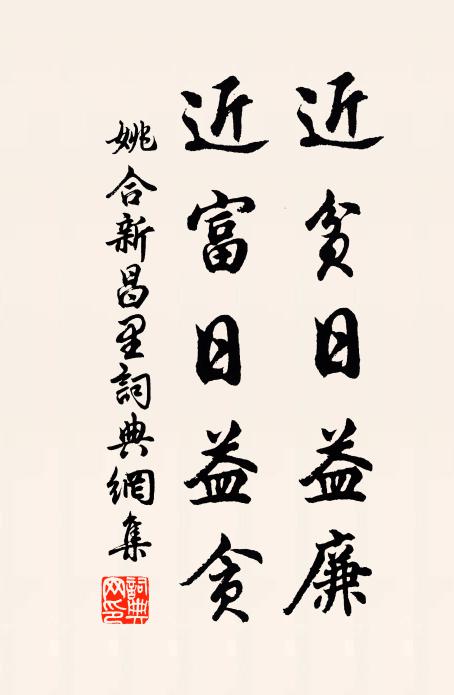 近貧日益廉
近富日益貪
姚合新昌里詞典網集
詞典網印